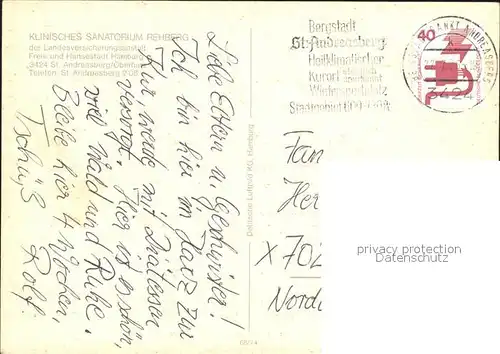 KLINISCHES SANATORIUM REHBERG
der Landesversicherungsanstalt
Freie und Hansestadt Hamburg
3424 St. Andreasberg/Oberharz
Telefon: St. Andreasberg
Bergstadt
St. Andreasberg
Heilklimatischer
Kurort
Wintersportplatz
SANKT ANDREASBERG
3424
40
Liebe Eltern u. Geschwister!
Ich bin hier im Harz zur
Kur, werde mit Diätessen
versorgt. Hier ist es schön,
viel Wald und Ruhe.
Bleibe hier 4 Wochen,
Tschüß Rolf.
Deutsche Luftbild KG, Hamburg
Fam
Her
X 702
Nordu
privacy protection
Datenschutz